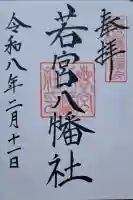 奉拝
若宮八幡社
令和八年二月十一日